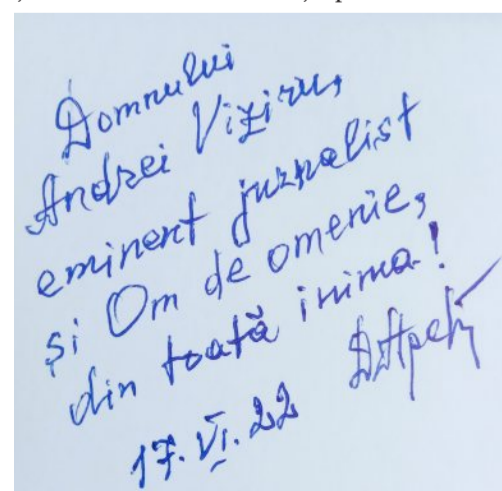 Domnului
Andrei Viziru,
eminent jurnalist
și Om de omenie,
din toată inima!
17.VI.22